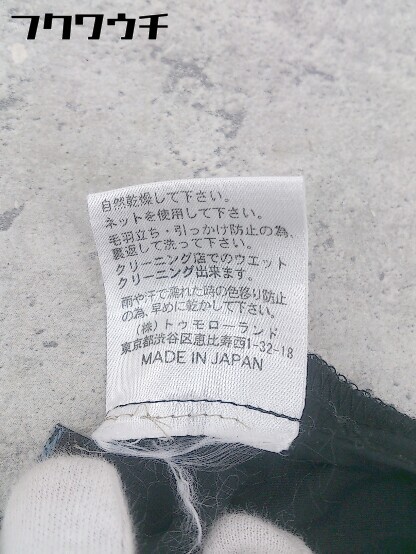 フクワウチ
自然乾燥して下さい。
ネットを使用して下さい。
毛羽立ち・引っかけ防止の為、
裏返して洗って下さい。
クリーニング店でのウエット
クリーニング出来ます。
雨や汗で濡れた時の色移り防止
の為、早めに乾かして下さい。
(株)トゥモローランド
東京都渋谷区恵比寿西1-32-18
MADE IN JAPAN